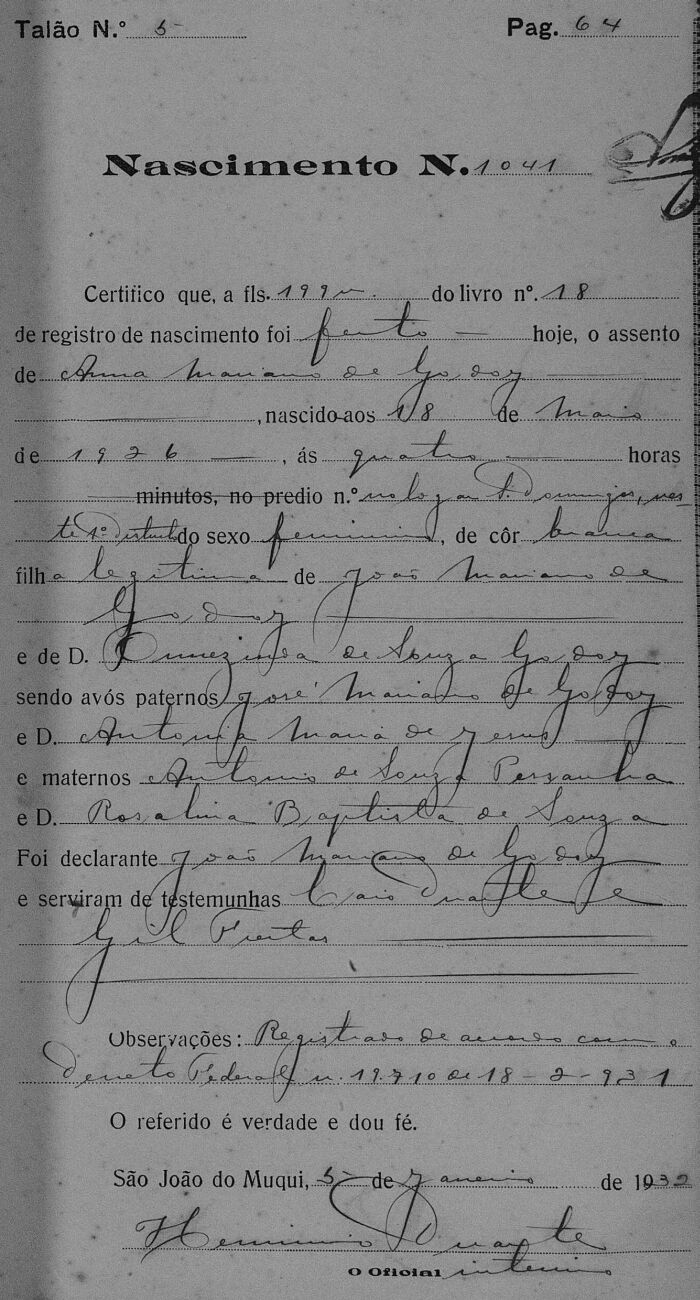 Talão N.º 5 Pag. 64
Nascimento N. 1041
Certifico que, a fls. 199v. do livro nº. 18
de registro de nascimento foi feito hoje, o assento
de Anna Mariano de Godoy
, nascido aos 18 de Maio
de 1926, ás quatro horas
minutos, no predio n.º no logar S. Domingos, nes-
te 1º Districto do sexo feminino, de côr branca
filha legitima de João Mariano de
Godoy
e de D. de Souza Godoy
sendo avós paternos José Mariano de Godoy
e D. Antonia Maria de Jesus
e maternos Antonio de Souza Pessanha
e D. Rosalina Baptista de Souza
Foi declarante João Mariano de Godoy
e serviram de testemunhas Caio Duarte e
Gil Freitas
Observações: Registrado de accordo com o
Decreto Federal n. 19.710 de 18-2-931
O referido é verdade e dou fé.
São João do Muqui, 5 de Janeiro de 1932
Herminio Duarte
O Oficial interino